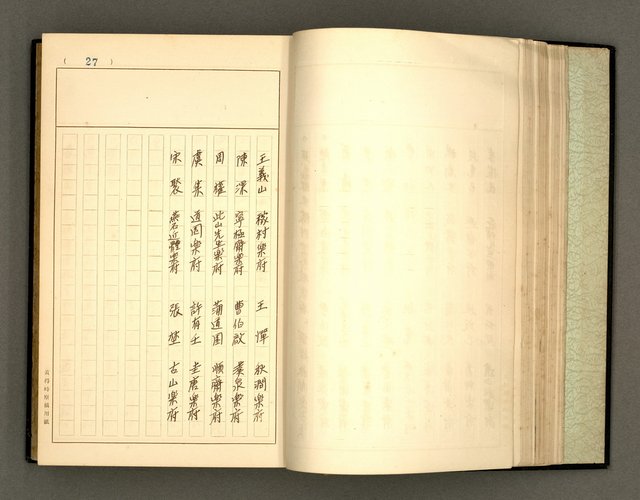 ( 27 )
王義山 稼村樂府 王惲 秋澗樂府
陳深 寧極齋樂府 曹伯啟 漢泉樂府
周權 此山先生樂府 蒲道園 順齋樂府
虞集 道園樂府 許有壬 圭唐樂府
宋褧 燕石近體樂府 張埜 古山樂府
黃得時原稿用紙